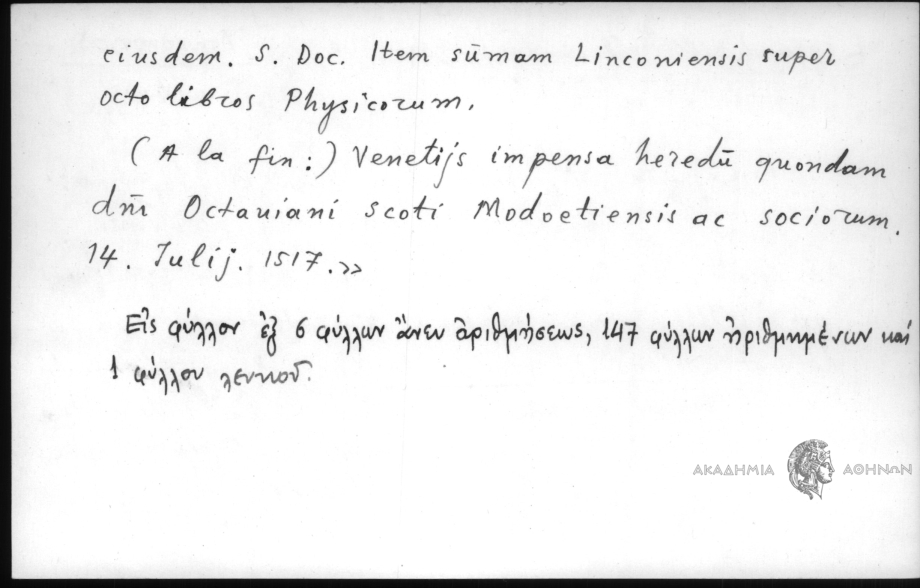 eiusdem. S. Doc. Item sūmam Linconiensis super
octo libros Physicorum.
(A la fin:) Venetijs impensa heredū quondam
dn̄i Octauiani scoti Modoetiensis ac sociorum.
14. Iulij. 1517.»
Εἰς φύλλον ἐξ 6 φύλλων ἄνευ ἀριθμήσεως, 147 φύλλων ἠριθμημένων καί
1 φύλλου λευκοῦ.
ΑΚΑΔΗΜΙΑ ΑΘΗΝΩΝ